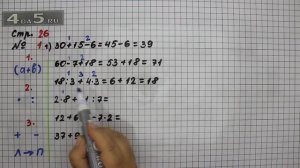 4A5.RU
Стр. 26
№ 1 1) 30+15-6=45-6=39
1. 60-7+18=53+18=71
(а+б)
2. 18:3+4·3=6+12=18
· : 2·8+ :7=
3. 12+6 -7·2=
+ - 37+
Л→П